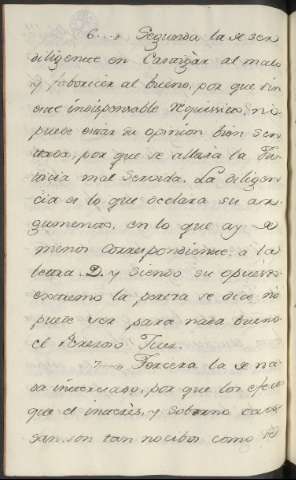 6.... Segunda la de ser
diligente en Castigar al malo
y faborecer al bueno, por que sin
este indispensable requisito, no
puede estar su opinion bien sen
tada, por que se allaria la Jus
ticia mal servida. La diligen
cia es lo que aclara su ar
gumento, en lo que ay de
menos correspondiente, a la
letra D. y siendo su opuesto
extremo la pereza se dice no
puede ser para nada bueno
el Perezoso Juez.
7.... Tercera la de na
da interesado, por que los efectos
que el interés, y soborno cau
san son tan nocibos como